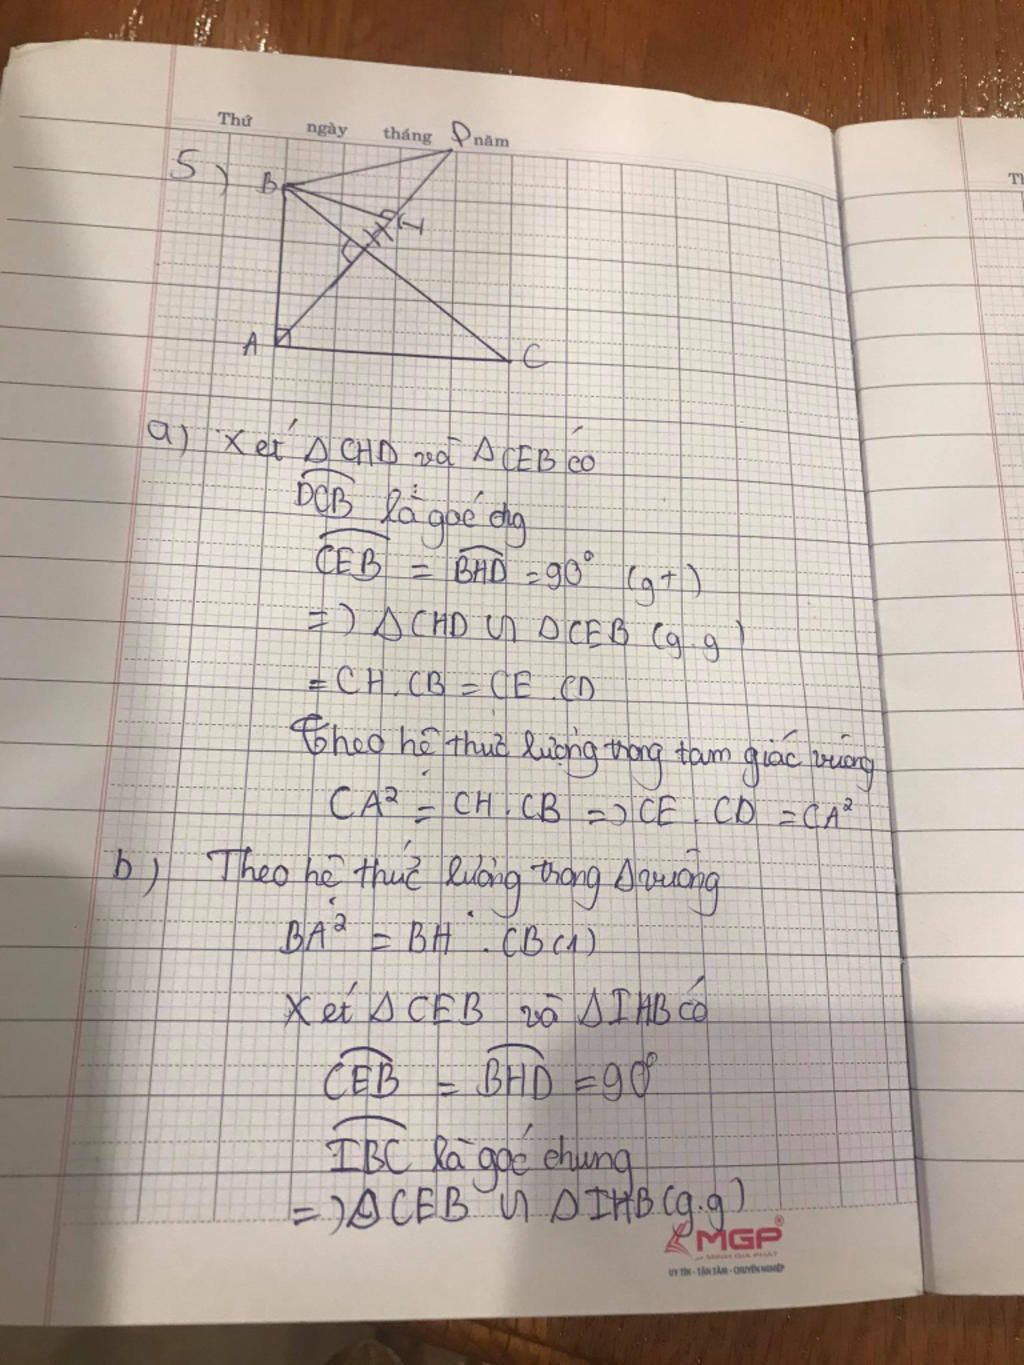 Thứ ngày tháng năm
5) B D H
A C
a) Xét Δ CHD và Δ CEB có
DCB là góc chg
CEB = BHD = 90° (gt)
=) Δ CHD ᔕ Δ CEB (g.g)
= CH.CB = CE.CD
Theo hệ thức lượng trong tam giác vuông
CA² = CH.CB =) CE.CD = CA²
b) Theo hệ thức lượng trong Δ vuông
BA² = BH.CB (1)
Xét Δ CEB và Δ IHB có
CEB = BHD = 90°
IBC là góc chung
=) Δ CEB ᔕ Δ IHB (g.g)
MGP®
MINH GIA PHÁT
UY TÍN - TẬN TÂM - CHUYÊN NGHIỆP